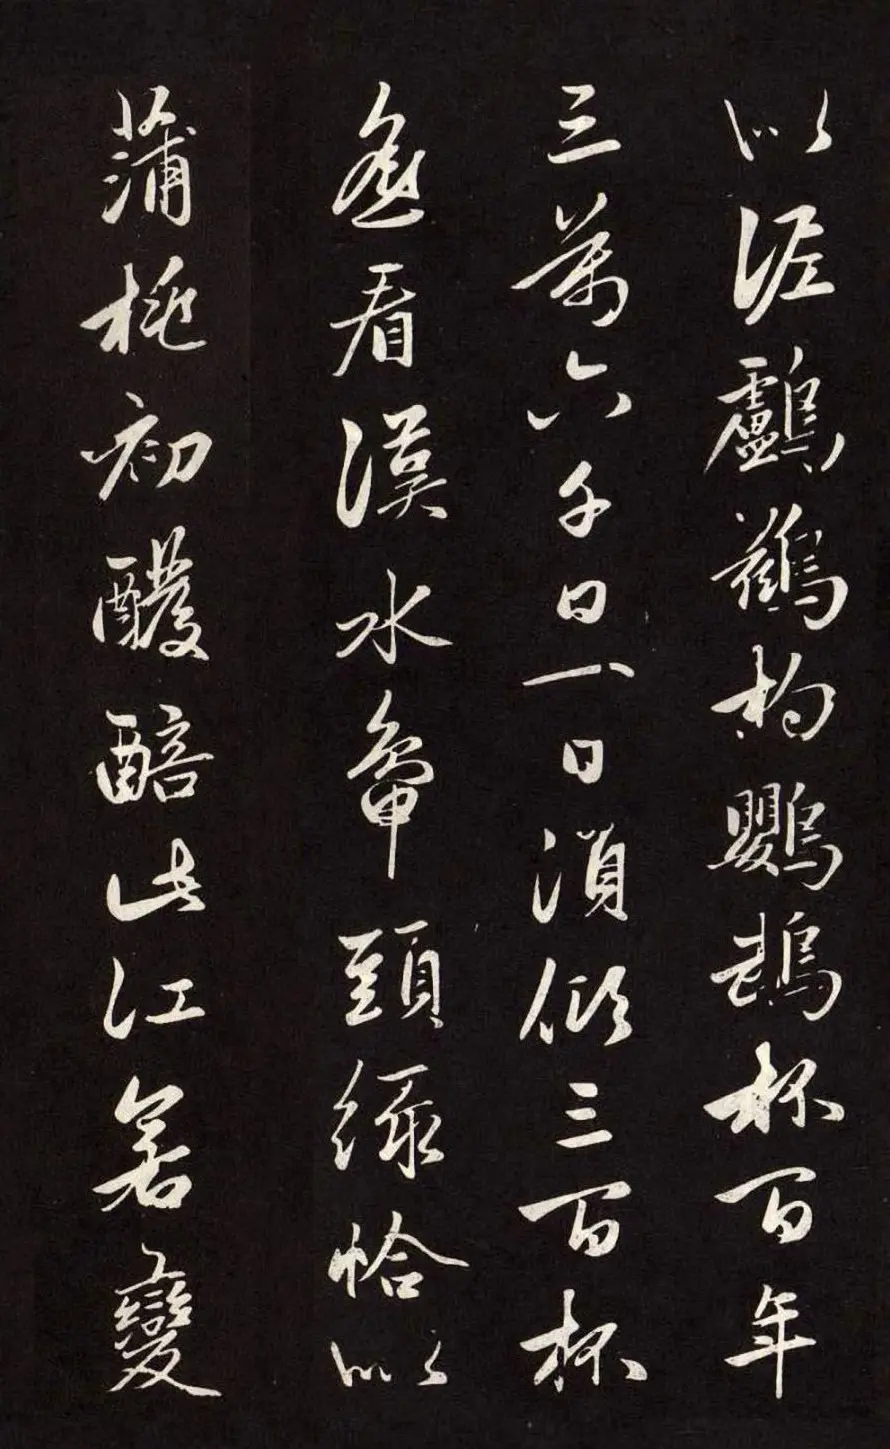 似泥鸕鷀杓鸚鵡杯百年
三萬六千日一日湏傾三百杯
遙看漢水鴨頭綠恰似
蒲桃初醱醅此江若變